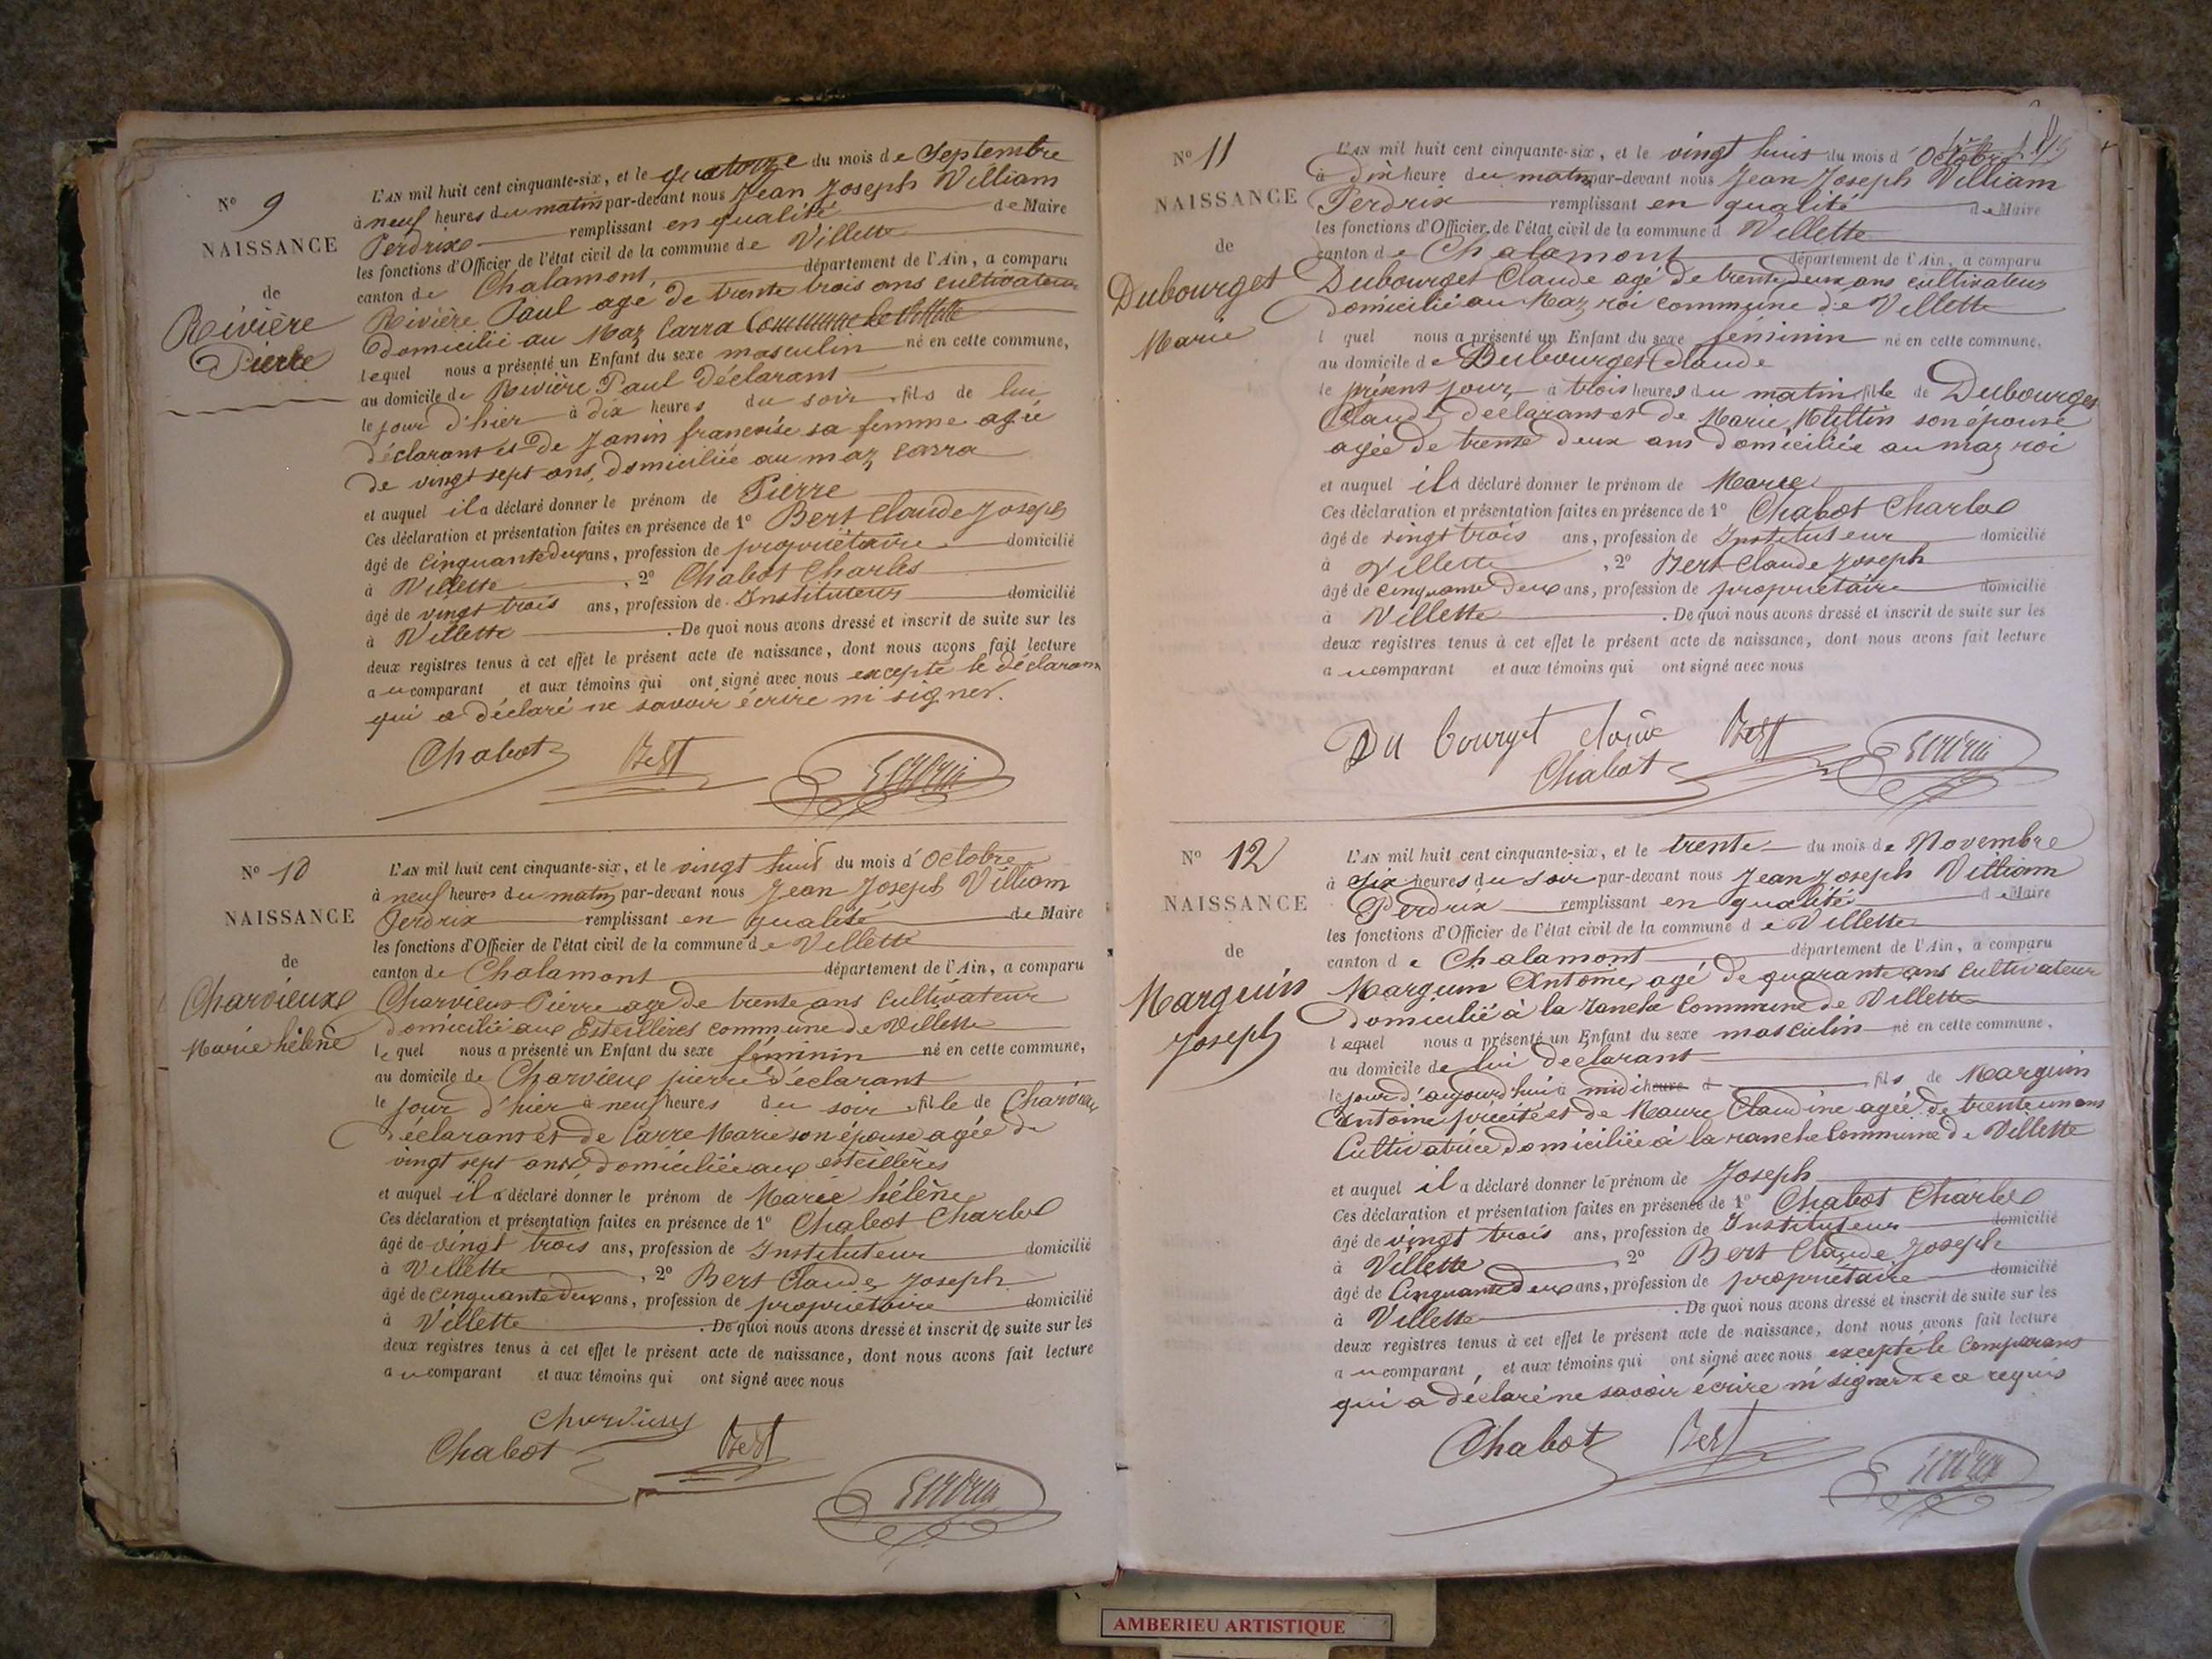 N° 9
NAISSANCE
de
Rivière
Pierre
L'AN mil huit cent cinquante-six, et le quatorze du mois de Septembre
à neuf heures du matin par-devant nous Jean Joseph Villiam
Perdrix remplissant en qualité de Maire
les fonctions d'Officier de l'état civil de la commune de Villette
canton de Chalamont, département de l'Ain, a comparu
Rivière Paul agé de trente trois ans cultivateur
domicilié au Maz Carra Commune de Villette
lequel nous a présenté un Enfant du sexe masculin né en cette commune,
au domicile de Rivière Paul déclarant
le jour d'hier à dix heures du soir, fils de lui
déclarant et de Janin françoise sa femme agée
de vingt sept ans, domiciliée au maz Carra
et auquel il a déclaré donner le prénom de Pierre
Ces déclaration et présentation faites en présence de 1° Bert Claude Joseph
âgé de cinquante deux ans, profession de propriétaire domicilié
à Villette, 2° Chabot Charles
âgé de vingt trois ans, profession de Instituteur domicilié
à Villette. De quoi nous avons dressé et inscrit de suite sur les
deux registres tenus à cet effet le présent acte de naissance, dont nous avons fait lecture
au comparant et aux témoins qui ont signé avec nous excepté le déclarant
qui a déclaré ne savoir écrire ni signer.
Chabot Bert Perdrix
N° 10
NAISSANCE
de
Charvieux
Marie hélène
L'AN mil huit cent cinquante-six, et le vingt huit du mois d'Octobre
à neuf heures du matin par-devant nous Jean Joseph Villiam
Perdrix remplissant en qualité de Maire
les fonctions d'Officier de l'état civil de la commune de Villette
canton de Chalamont département de l'Ain, a comparu
Charvieux Pierre age de trente ans Cultivateur
domicilié aux Esteillères commune de Villette
lequel nous a présenté un Enfant du sexe féminin né en cette commune,
au domicile de Charvieux pierre déclarant
le jour d'hier à neuf heures du soir, fille de Charvieux
déclarant et de Carre Marie son épouse agée de
vingt sept ans domiciliée aux esteillères
et auquel il a déclaré donner le prénom de Marie hélène
Ces déclaration et présentation faites en présence de 1° Chabot Charles
âgé de vingt trois ans, profession de Instituteur domicilié
à Villette, 2° Bert Claude Joseph
âgé de cinquante deux ans, profession de propriétaire domicilié
à Villette. De quoi nous avons dressé et inscrit de suite sur les
deux registres tenus à cet effet le présent acte de naissance, dont nous avons fait lecture
au comparant et aux témoins qui ont signé avec nous
Charvieux
Chabot Bert
Perdrix
N° 11
NAISSANCE
de
Dubourget
Marie
L'AN mil huit cent cinquante-six, et le vingt huit du mois d'Octobre
à dix heure du matin par-devant nous Jean Joseph Villiam
Perdrix remplissant en qualité de Maire
les fonctions d'Officier de l'état civil de la commune d Villette
canton de Chalamont département de l'Ain, a comparu
Dubourget Claude agé de trente deux ans cultivateur
domicilié au Maz roi commune de Villette
l quel nous a présenté un Enfant du sexe féminin né en cette commune,
au domicile de Dubourget Claude
le présent jour, à trois heures du matin fille de Dubourget
Claude déclarant et de Marie Mittin son épouse
agée de trente deux ans domiciliée au maz roi
et auquel il a déclaré donner le prénom de Marie
Ces déclaration et présentation faites en présence de 1° Chabot Charles
âgé de vingt trois ans, profession de Instituteur domicilié
à Villette, 2° Bert Claude Joseph
âgé de cinquante deux ans, profession de propriétaire domicilié
à Villette. De quoi nous avons dressé et inscrit de suite sur les
deux registres tenus à cet effet le présent acte de naissance, dont nous avons fait lecture
au comparant et aux témoins qui ont signé avec nous
Du bourget Bert
Chabot Perdrix
N° 12
NAISSANCE
de
Marguin
Joseph
L'AN mil huit cent cinquante-six, et le trente du mois de Novembre
à six heures du soir par-devant nous Jean Joseph Villiam
Perdrix remplissant en qualité de Maire
les fonctions d'Officier de l'état civil de la commune de Villette
canton de Chalamont département de l'Ain, a comparu
Marguin Antoine, agé de quarante ans cultivateur
domicilié à la ranche Commune de Villette
lequel nous a présenté un Enfant du sexe masculin né en cette commune,
au domicile de lui déclarant
le jour d'aujourd'hui à midi heure d fils de Marguin
Antoine précité et de Maure Claudine agée de trente un ans
Cultivatrice domiciliée à la ranche Commune de Villette
et auquel il a déclaré donner le prénom de Joseph
Ces déclaration et présentation faites en présence de 1° Chabot Charles
âgé de vingt trois ans, profession de Instituteur domicilié
à Villette, 2° Bert Claude Joseph
âgé de Cinquante deux ans, profession de propriétaire domicilié
à Villette. De quoi nous avons dressé et inscrit de suite sur les
deux registres tenus à cet effet le présent acte de naissance, dont nous avons fait lecture
au comparant et aux témoins qui ont signé avec nous excepté le Comparant
qui a déclaré ne savoir écrire ni signer de ce requis
Chabot Bert Perdrix
AMBERIEU ARTISTIQUE